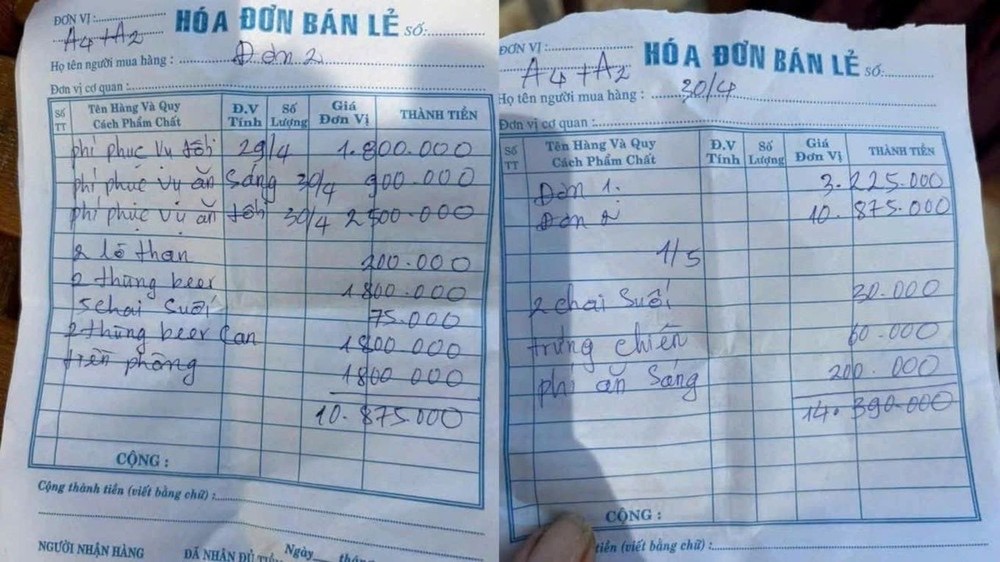 ĐƠN VỊ :
A4+A2
HÓA ĐƠN BÁN LẺ SỐ:
Họ tên người mua hàng : Đơn 2
Đơn vị cơ quan :
Số TT Tên Hàng Và Quy Cách Phẩm Chất Đ.V Tính Số Lượng Giá Đơn Vị THÀNH TIỀN
phí phục vụ tối 29/4 1.800.000
phí phục vụ ăn sáng 30/4 900.000
phí phục vụ ăn tối 30/4 2500.000
2 lò than 200.000
2 thùng beer 1800.000
5 chai suối 75.000
2 thùng beer Can 1800.000
tiền phòng 1800.000
10.875.000
CỘNG :
Cộng thành tiền (viết bằng chữ) :
NGƯỜI NHẬN HÀNG ĐÃ NHẬN ĐỦ Ngày
ĐƠN VỊ :
A4+A2
HÓA ĐƠN BÁN LẺ SỐ:
Họ tên người mua hàng : 30/4
Đơn vị cơ quan :
Số TT Tên Hàng Và Quy Cách Phẩm Chất Đ.V Tính Số Lượng Giá Đơn Vị THÀNH TIỀN
Đơn 1. 3.225.000
Đơn 2 10.875.000
1/5
2 chai suối 30.000
trứng chiên 60.000
phí ăn sáng 200.000
14.390.000
CỘNG :
tiền (viết bằng chữ) :